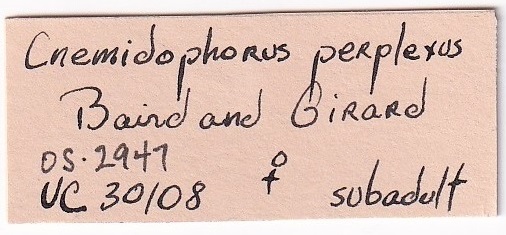 Cnemidophorus perplexus
Baird and Girard
OS·2947
UC 30108 ♀ subadult